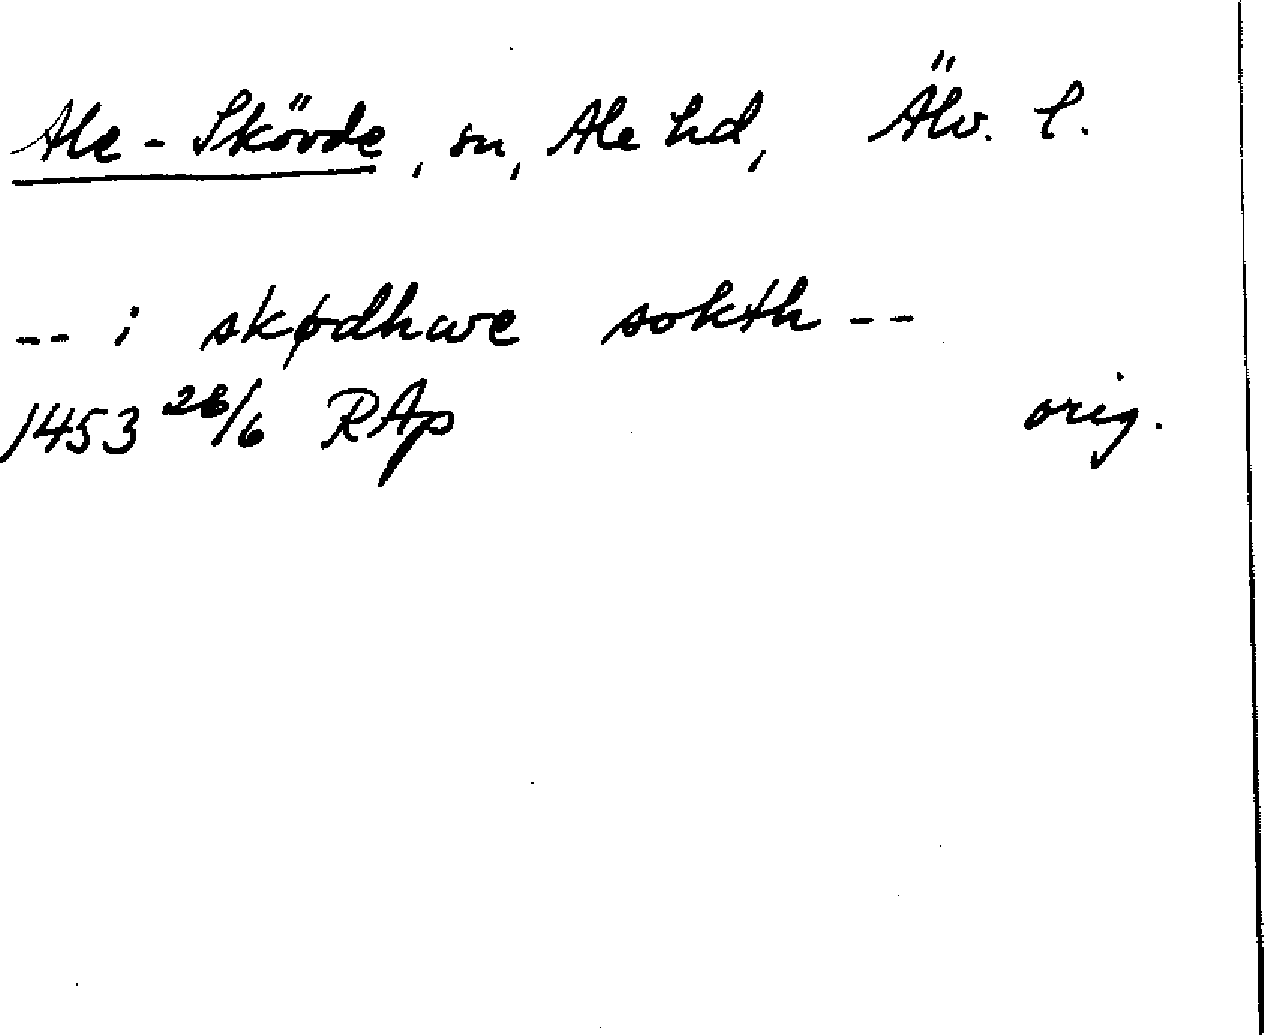 Ale-Skövde, sn, Ale hd, Älv. l.
-- i skødhwe sokth --
1453 28/6 RAp orig.